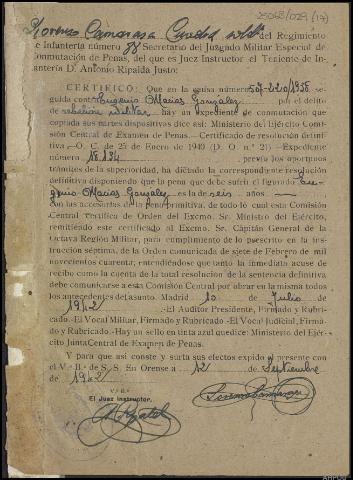 25068/029 (17)
Lorenzo Camarasa del Regimiento
de Infantería número 88 Secretario del Juzgado Militar Especial de
Conmutación de Penas, del que es Juez Instructor el Teniente de In-
fantería D. Antonio Ripalda Justo:
CERTIFICO: Que en la causa número 1938, se-
guida contra Eugenio Macias Gonzalez por el delito
de rebelión militar hay un expediente de conmutación que
copiada sus partes dispositivas dice así: Ministerio del Ejército Comi-
sión Central de Examen de Penas.—Certificado de resolución defini-
tiva—O. C. de 25 de Enero de 1940 (D. O. n.º 21)—Expediente
número 18.134, previo los oportunos
trámites de la superioridad, ha dictado la correspondiente resolución
definitiva disponiendo que la pena que debe sufrir el figurado Eu-
genio Macias Gonzalez es la de seis años
Con las accesorias de la primitiva, de todo lo cual esta Comisión
Central certifica de Orden del Excmo. Sr. Ministro del Ejército,
remitiendo este certificado al Excmo. Sr. Capitán General de la
Octava Región Militar, para cumplimento de lo prescrito en la ins-
trucción séptima, de la Orden comunicada de siete de Febrero de mil
novecientos cuarenta, entendiéndose que tanto la inmediata acuse de
recibo como la cuenta de la total resolución de la sentencia definitiva
debe comunicarse a esta Comisión Central por obrar en la misma todos
los antecedentes del asunto. Madrid 10 de Julio de
1942 .-El Auditor Presidente, Firmado y Rubri-
cado.-El Vocal Militar, Firmado y Rubricado-El Vocal Judicial, Firma-
do y Rubricado.-Hay un sello en tinta azul que dice: Ministerio del Ejér-
cito Junta Central de Examen de Penas.
Y para que así conste y surta sus efectos expido el presente con
el V.º B.º de S. S. En Orense a 12 de Septiembre
de 1942
V.º B.º
El Juez Instructor,
A. Ripalda
Lorenzo Camarasa